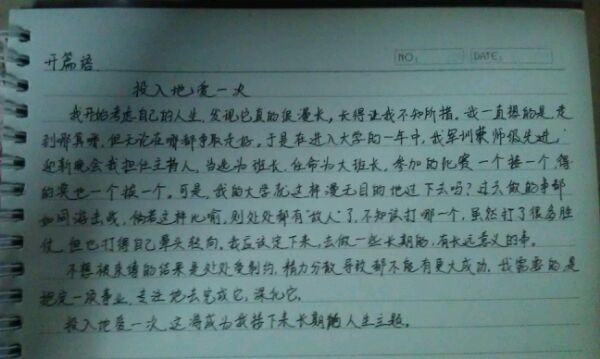 NO:
DATE:
开篇语
投入地爱一次
我开始考虑自己的人生,发现它真的很漫长,长得让我不知所措。我一直想的是走
到哪算哪,但无论在哪都争取走好。于是在进入大学的一年中,我军训获师级先进,
迎新晚会我担任主持人,当选为班长,任命为大班长,参加的比赛一个接一个,得
的奖也一个接一个。可是,我的大学就这样漫无目的地过下去吗?过去做的事都
如同游击战,倘若这样比喻,则处处都有“敌人”了,不知该打哪一个,虽然打了很多胜
仗,但也打得自己晕头转向,我应该定下来,去做一些长期的,有长远意义的事。
不想被束缚的结果是处处受制约,精力分散导致都不能有更大成功,我需要的是
把定一项事业,专注地去完成它,深化它。
投入地爱一次,这将成为我接下来长期的人生主题。